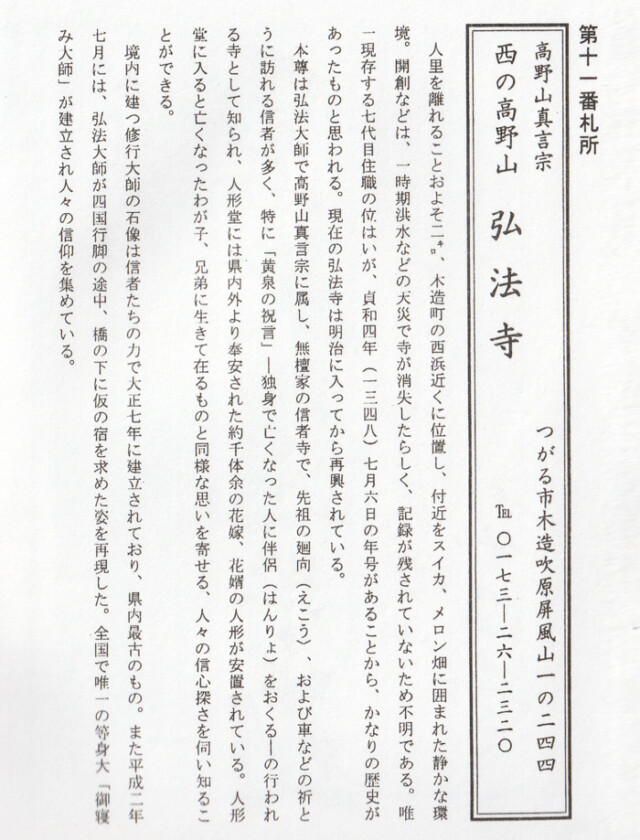 第十一番札所
高野山真言宗
西の高野山 弘法寺
つがる市木造吹原屏風山一の二四四
℡ 〇一七三―二六―二三二〇
人里を離れることおよそ二㌔、木造町の西浜近くに位置し、付近をスイカ、メロン畑に囲まれた静かな環
境。開創などは、一時期洪水などの天災で寺が消失したらしく、記録が残されていないため不明である。唯
一現存する七代目住職の位はいが、貞和四年（一三四八）七月六日の年号があることから、かなりの歴史が
あったものと思われる。現在の弘法寺は明治に入ってから再興されている。
本尊は弘法大師で高野山真言宗に属し、無檀家の信者寺で、先祖の廻向（えこう）、および車などの祈と
うに訪れる信者が多く、特に「黄泉の祝言」―独身で亡くなった人に伴侶（はんりょ）をおくる―の行われ
る寺として知られ、人形堂には県内外より奉安された約千体余の花嫁、花婿の人形が安置されている。人形
堂に入ると亡くなったわが子、兄弟に生きて在るものと同様な思いを寄せる、人々の信心深さを伺い知るこ
とができる。
境内に建つ修行大師の石像は信者たちの力で大正七年に建立されており、県内最古のもの。また平成二年
七月には、弘法大師が四国行脚の途中、橋の下に仮の宿を求めた姿を再現した。全国で唯一の等身大「御寝
み大師」が建立され人々の信仰を集めている。